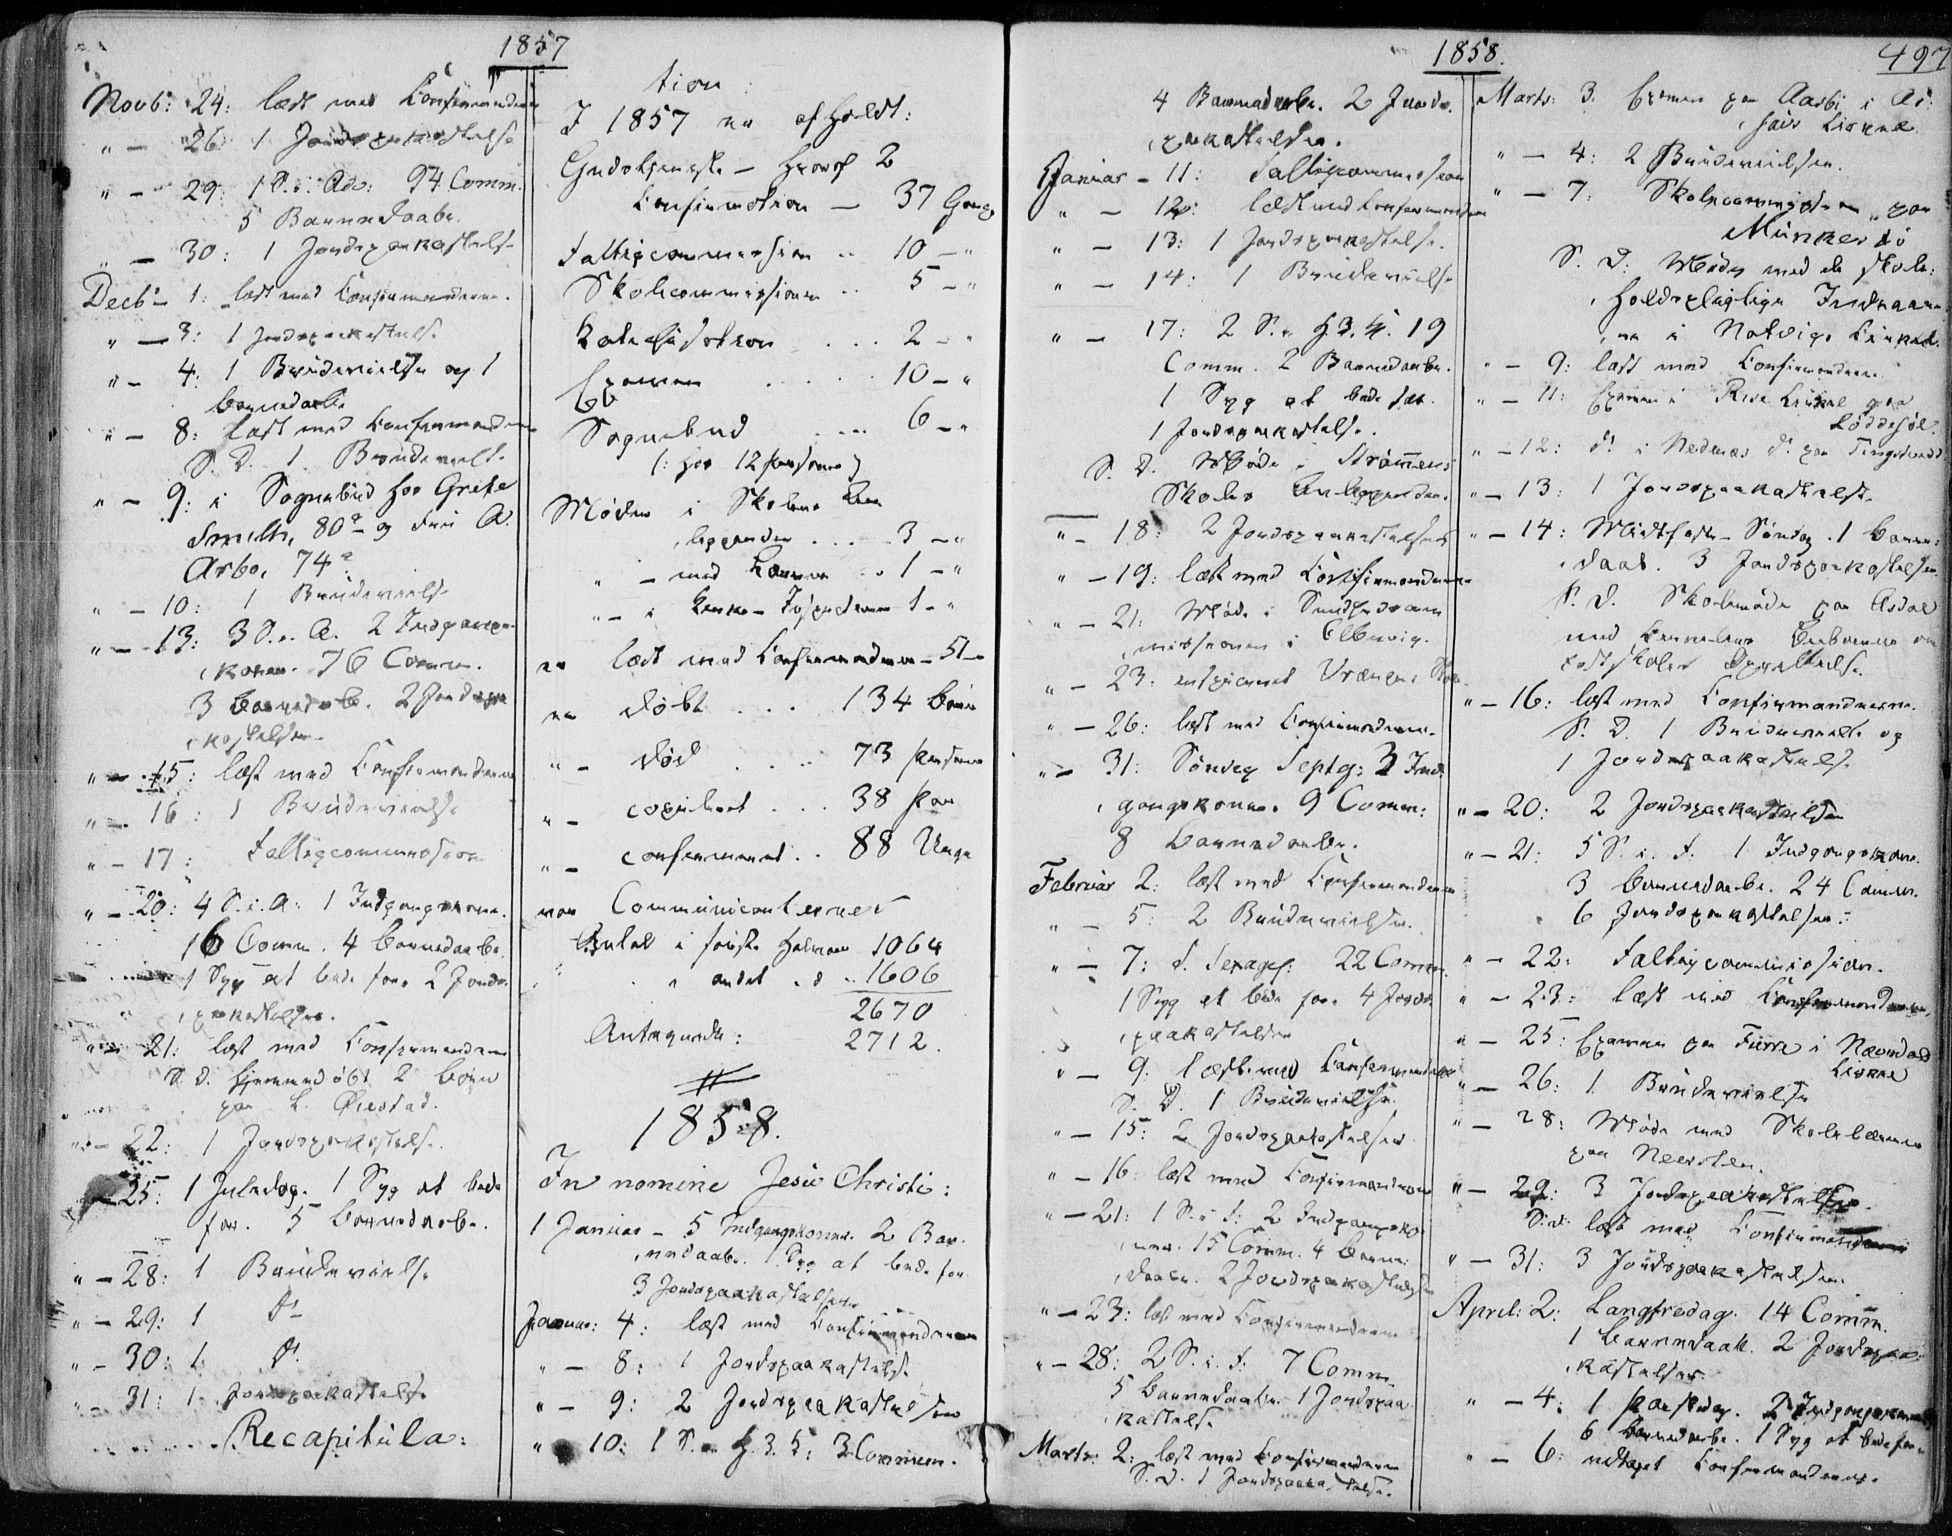 1857
Novb: 24: læst med Confirmanderne
" — 26: 1 Jordspaakastelse
" — 29: 1 S. i Adv: 94 Comm.
5 Barnedaabe.
" — 30: 1 Jordspaakastelse
Decbr — 1: læst med Confirmanderne.
" — 3: 1 Jordspaakastelse
" — 4: 1 Brudevielse og 1
Barnedaab.
" — 8: læst med Confirmanderne
S. D. 1 Brudevielse
" — 9: i Sognebud hos Grete
Smith, 80 a og Fru A.
Arbo, 74 a
" — 10: 1 Brudevielse
" — 13: 3 S. i A. 2 Indgangs-
koner. 76 Comm.
3 Barnedaabe. 2 Jordspaa
kastelser
" — 15: læst med Confirmanderne
" — 16: 1 Brudevielse
" — 17: Fattigcommission
" — 20: 4 S. i. A: 1 Indgangskone.
16 Comm. 4 Barnedaabe.
1 Syg at bede for. 2 Jords-
paakastelser.
" — 21: læst med Confirmanderne
S. D. hjemmedøbt 2 Børn
paa L. Øiestad.
" — 22: 1 Jordspaakastelse.
" — 25: 1 Juledag. 1 Syg at bede
for. 5 Barnedaabe.
" — 28: 1 Brudevielse
" — 29: 1 do
" — 30: 1 do
" — 31: 1 Jordspaakastelse
Recapitula:
tion:
I 1857 er afholdt:
Gudstjeneste —
Confirmation — 37 Gange
Fattigcommission .. 10 — "
Skolecommission .. 5 — "
Katechisation ... 2 — "
Examen ..... 10 — "
Sognebud .... 6 — "
(: hos 12 Personer)
Møder i Skolens
.... 3 — "
" — med .. 1 — "
" — i 1 — "
er læst med Confirmanderne — 51 —
er døbt ... 134 Børn
" — død .... 73 Personer
" — copuleret ... 38 Par
" — confirmeret .. 88 Unge
var Communicanternes
Antal i første Halvaar 1064
" i andet " d .. 1606
2670
Antegnede: 2712.
1858.
In nomine Jesu Christi:
1 Januar — 5 Indgangskoner. 2 Bar-
nedaabe. 1 Syg at bede for.
3 Jordspaakastelser
Januar: 4: læst med Confirmanderne
" — 8: 1 Jordspaakastelse.
" — 9: 2 Jordspaakastelser
" 10: 1 S. e. H. 3. K. 3 Commun.
1858.
497
4 Barnedaabe. 2 Jords-
paakastelser.
Januar — 11: Fattigcommission
" — 12: læst med Confirmanderne
" — 13: 1 Jordspaakastelse.
" — 14: 1 Brudevielse
" — 17: 2 S. e. H. 3. K. 19
Comm. 2 Barnedaabe.
1 Syg at bede for.
1 Jordspaakastelse.
S. D. Møde i Strømmens
Skoles
" — 18: 2 Jordspaakastelser
" — 19: læst med Confirmanderne
" — 21: Møde i Sundhedscom
missionen i Elbevig.
" — 23: inspiceret Vrængens Skole
" — 26: læst med Confirmanderne.
" — 31: Søndag Septg: 3 Ind-
gangskoner. 9 Comm:
8 Barnedaabe.
Februar 2: læst med Confirmanderne
" — 5: 2 Brudevielser.
" — 7: S. Sexages: 22 Comm.
1 Syg at bede for. 4 Jords-
paakastelser
" — 9: læst med Confirmanderne
S. D. 1 Brudevielse.
" — 15: 2 Jordspaakastelser
" — 16: læst med Confirmanderne
" — 21: 1 S. i F: 2 Indgangsko-
ner. 15 Comm. 4 Barne-
daabe. 2 Jordspaakastelser
" — 23: læst med Confirmanderne
" — 28: 2 S. i. F. 7 Comm.
5 Barnedaabe. 1 Jordspaa-
kastelse
Marts: 2: læst med Confirmanderne
S. D. 1 Jordspaakastelse.
Marts: 3. Examen paa Aasbi i
" — 4: 2 Brudevielser.
" — 7: Skolecommission paa
Munkerdø
S. D: Møde med de Skole-
holdspligtige Indvaane-
re i Natvigs Circul.
" — 9: læst med Confirmanderne.
" — 11: Examen i Rise Circul paa
Løddesøl.
" — 12: do i Nedenæs do paa Tingstvedt
" — 13: 1 Jordspaakastelse.
" — 14: Midtfaste-Søndag. 1 Barne-
daab. 3 Jordspaakastelser
S. D. Skolemøde paa Asdal
med om
fast Skoles Oprettelse.
" — 16: læst med Confirmanderne.
S. D. 1 Brudevielse og
1 Jordspaakastelse
" — 20: 2 Jordspaakastelser
" — 21: 5 S. i. F. 1 Indgangskone.
3 Barnedaabe. 24 Comm.
6 Jordspaakastelser:
" — 22: Fattigcommission.
" — 23: læst med Confirmanderne,
" — 25: Examen paa Furre i
Circul
" — 26: 1 Brudevielse
" — 28: Møde med Skolelærerne
paa Neersten.
" — 29: 3 Jordspaakastelser.
S. D. læst med Confirmanderne
" — 31: 3 Jordspaakastelser.
April: 2: Langfredag. 14 Comm.
1 Barnedaab. 2 Jordspaa-
kastelser.
" — 4: 1 Paaskedag. 2 Indgangskoner
6 Barnedaabe. 1 Syg at bede for.
" — 6: udtaget Confirmanderne.